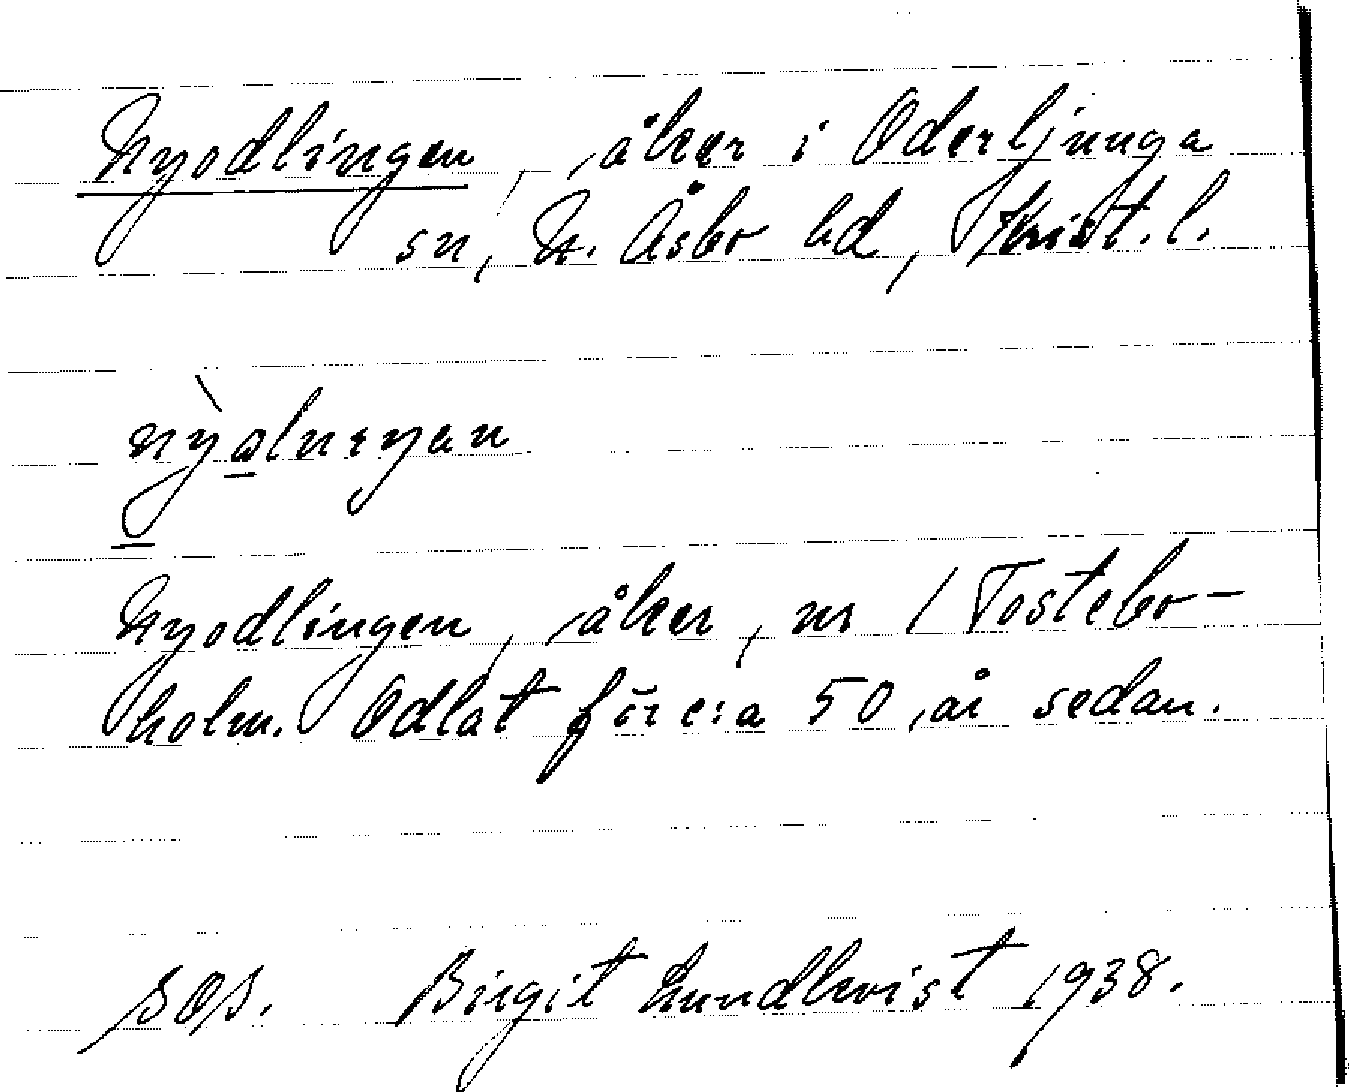 Nyodlingen, åker i Oderljunga
sn, N. Åsbo hd, Krist. l.
nỳolnıŋen
Nyodlingen, åker, nr 1 Tostebo-
holm. Odlat för c:a 50 år sedan.
Birgit Lundkvist 1938.